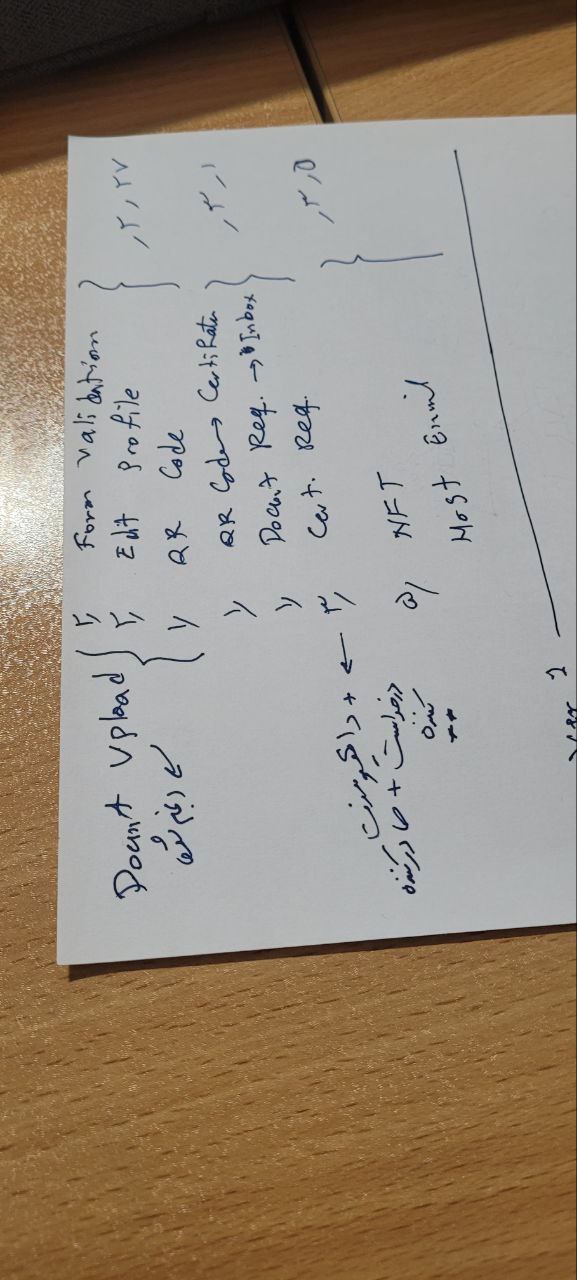 Docunt Upload
۲, Form Validation
۲, Edit Profile
۱, QR Code
,۲,۲۷
۱, QR Code → Certificate
۱, Docunt Req. → Inbox
,۳,۱
۳, Cert. Req.
← + داکیومنت
درخواست + صادرکننده
کننده
۵, NFT
Host Email
,۳,۵
Ver 1